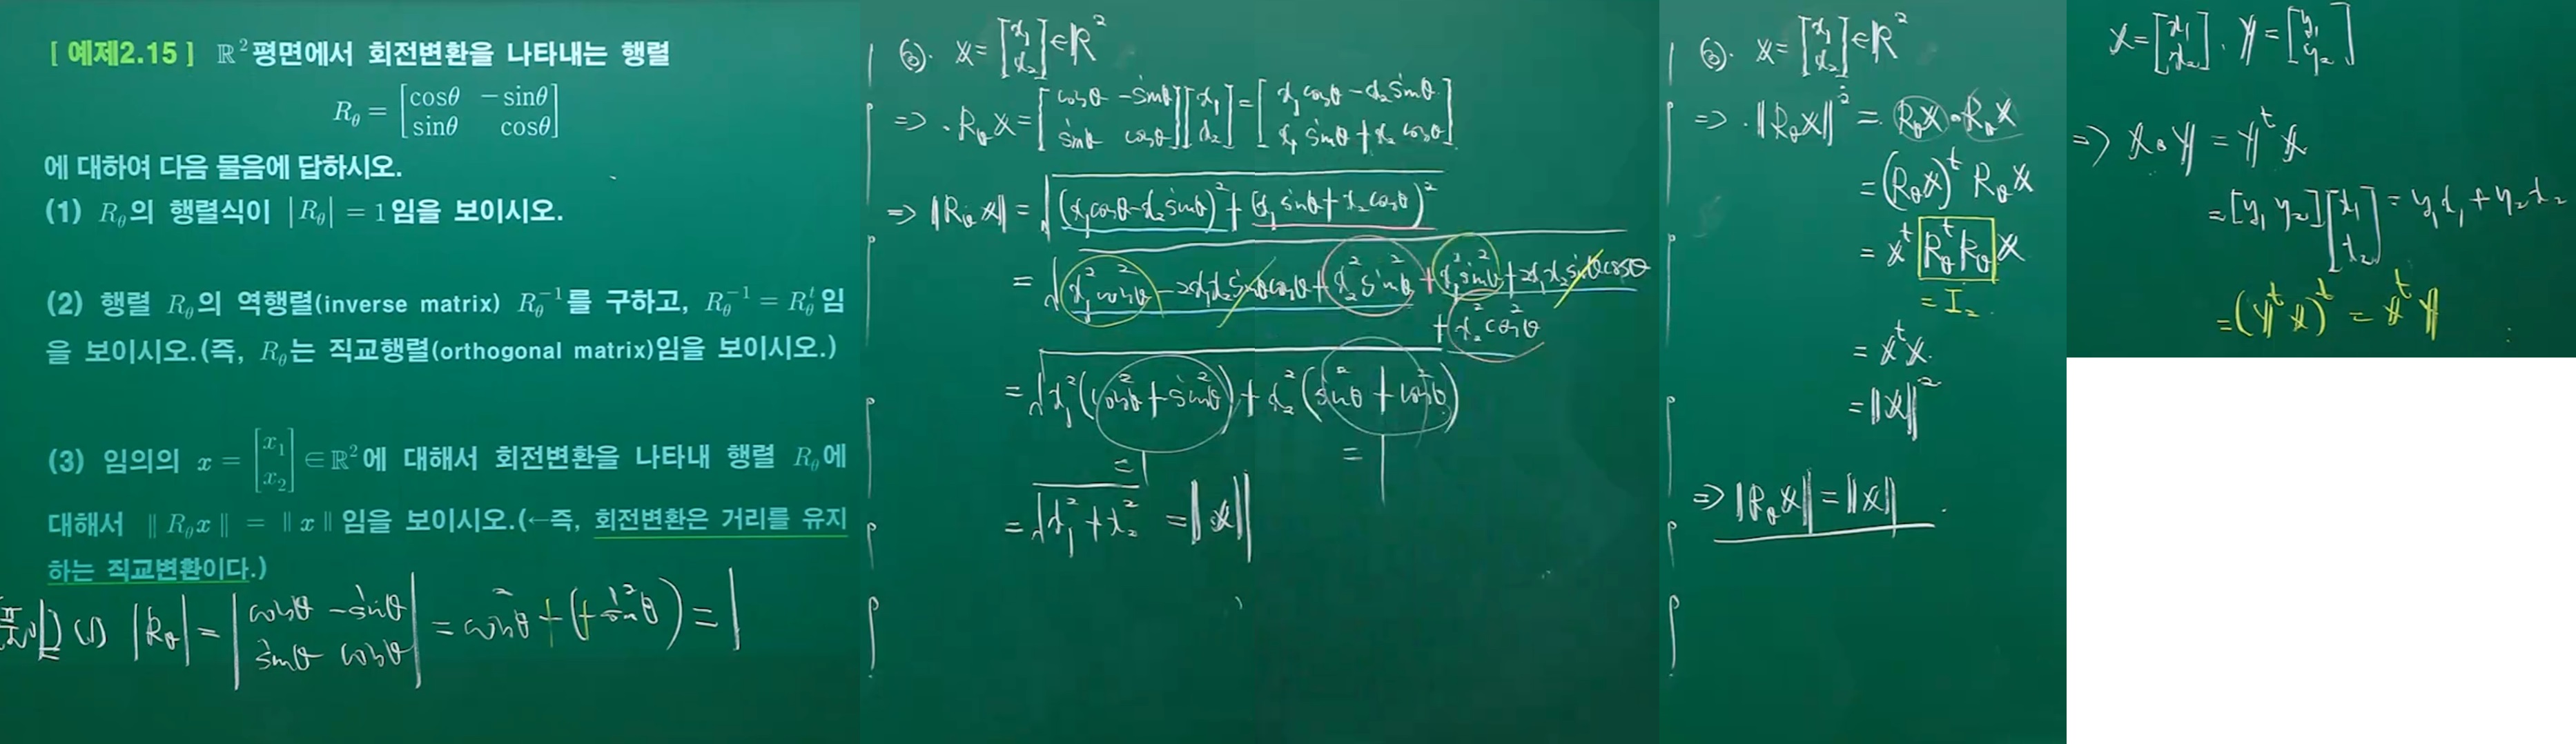 [ 예제2.15 ] ℝ² 평면에서 회전변환을 나타내는 행렬
R_θ = [cosθ −sinθ; sinθ cosθ]
에 대하여 다음 물음에 답하시오.
(1) R_θ의 행렬식이 |R_θ| = 1임을 보이시오.
(2) 행렬 R_θ의 역행렬(inverse matrix) R_θ⁻¹를 구하고, R_θ⁻¹ = R_θᵗ임
을 보이시오.(즉, R_θ는 직교행렬(orthogonal matrix)임을 보이시오.)
(3) 임의의 x = [x₁; x₂] ∈ ℝ²에 대해서 회전변환을 나타내 행렬 R_θ에
대해서 ‖ R_θx ‖ = ‖ x ‖ 임을 보이시오.(←즉, 회전변환은 거리를 유지
하는 직교변환이다.)
(1) |R_θ| = |cosθ −sinθ; sinθ cosθ| = cos²θ + (+sin²θ) = 1
(3). x = [x₁; x₂] ∈ ℝ²
⇒ · R_θ x = [cosθ −sinθ; sinθ cosθ][x₁; x₂] = [x₁cosθ − x₂sinθ; x₁sinθ + x₂cosθ]
⇒ ‖R_θ x‖ = √((x₁cosθ − x₂sinθ)² + (x₁sinθ + x₂cosθ)²)
= √(x₁²cos²θ − 2x₁x₂sinθcosθ + x₂²sin²θ + x₁²sin²θ + 2x₁x₂sinθcosθ
+ x₂²cos²θ)
= √(x₁²(cos²θ + sin²θ) + x₂²(sin²θ + cos²θ))
= 1 = 1
= √(x₁² + x₂²) = ‖x‖
(3). x = [x₁; x₂] ∈ ℝ²
⇒ · ‖R_θ x‖² = R_θ x • R_θ x
= (R_θ x)ᵗ R_θ x
= xᵗ R_θᵗ R_θ x
= I₂.
= xᵗ x.
= ‖x‖²
⇒ ‖R_θ x‖ = ‖x‖.
x = [x₁; x₂], y = [y₁; y₂]
⇒ x • y = yᵗ x
= [y₁ y₂][x₁; x₂] = y₁x₁ + y₂x₂
= (yᵗ x)ᵗ = xᵗ y